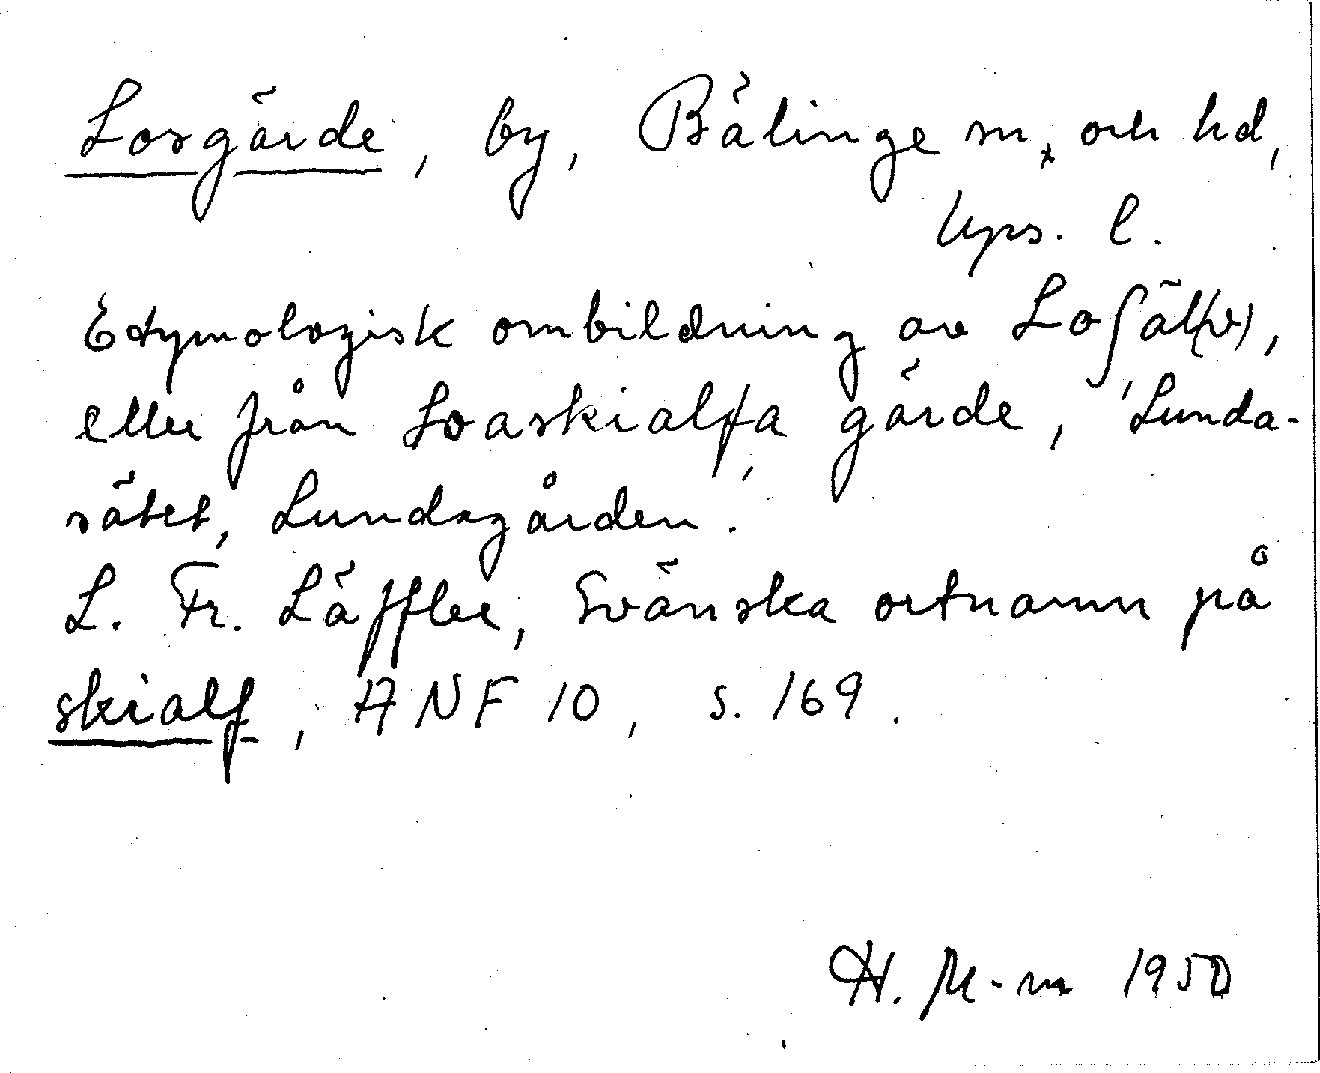 Losgärde, by, Bälinge sn, och hd,
Ups. l.
Etymologisk ombildning av Loʃäl(v),
eller från Loaskialfa gärde, 'Lunda-
sätet, Lundagården'.
L. Fr. Läffler, Svänska ortnamn på
skialf, ANF 10, s. 169.
H. M-m 1950